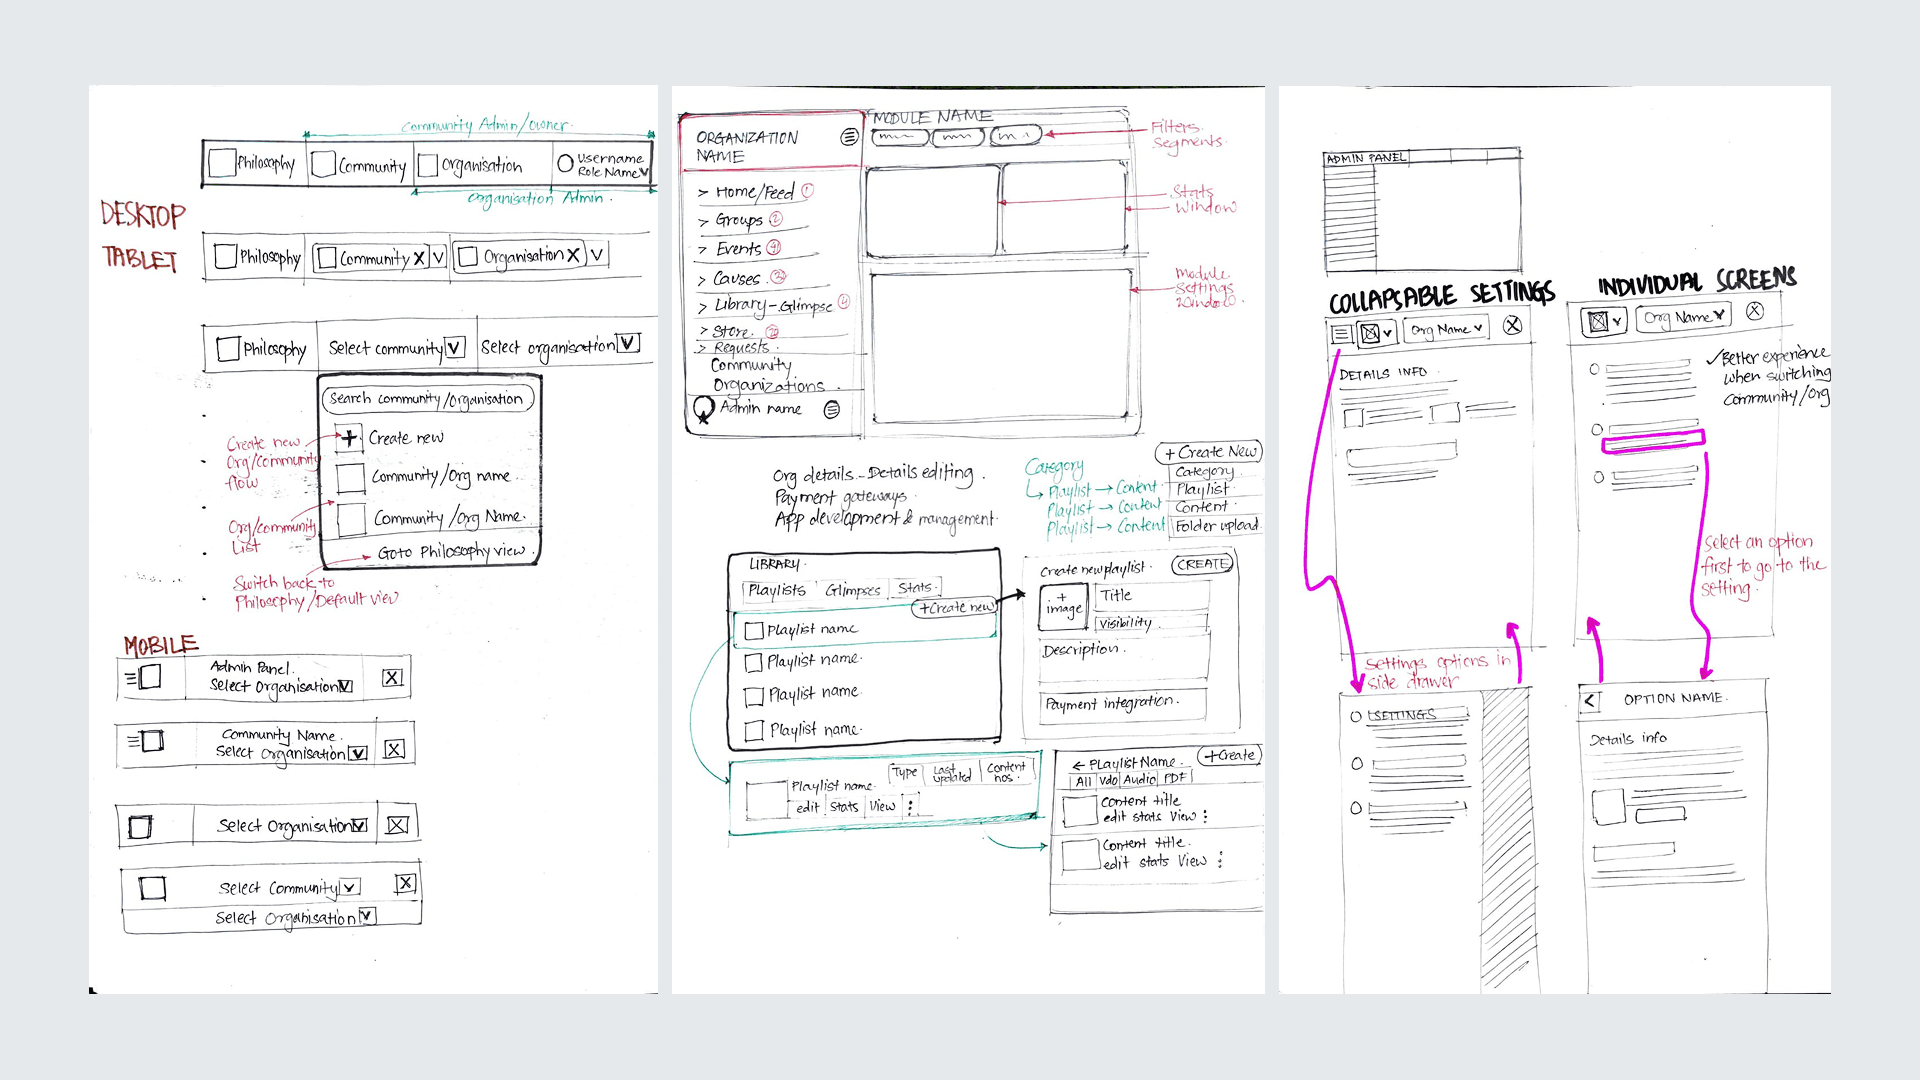 Community Admin/owner.
Philosophy
Community
Organisation
Username
Role Name
Organisation Admin.
DESKTOP
TABLET
Philosophy
Community X
Organisation X
Philosophy
Select community
Select organisation
Search community/organisation
+ Create new
Community/Org name
Community/Org Name.
Goto Philosophy view.
Create new
Org/community
flow
Org/community
List
Switch back to
Philosophy/Default view
MOBILE
Admin Panel.
Select Organisation
X
Community Name.
Select Organisation
X
Select Organisation
X
Select Community
X
Select Organisation
ORGANIZATION
NAME
MODULE NAME
Filters
Segments.
> Home/Feed 1
> Groups 2
> Events
> Causes 3
> Library-Glimpse 4
> Store.
> Requests.
Community
Organizations
Admin name
Stats
Window
Module
Settings
Window
Org details - Details editing.
Payment gateways.
App development & management.
Category
Playlist → Content
Playlist → Content
Playlist → Content
+ Create New
Category
Playlist
Content
Folder upload.
LIBRARY.
Playlists
Glimpses
Stats.
+Create new
Playlist name
Playlist name.
Playlist name.
Playlist name.
Create new playlist.
CREATE
+
image
Title
Visibility
Description.
Payment integration.
Playlist name.
Type
Last
updated
Content
nos.
edit
Stats
View
← PLaylist Name.
+Create
All
Vdo
Audio
PDF
Content title
edit stats View
Content title.
edit stats View
ADMIN PANEL
COLLAPSABLE SETTINGS
Org Name
X
DETAILS INFO
INDIVIDUAL SCREENS
Org Name
X
✓Better experience
when switching
Community/Org
Select an option
first to go to the
setting.
Settings options in
side drawer
SETTINGS
<
OPTION NAME.
Details info